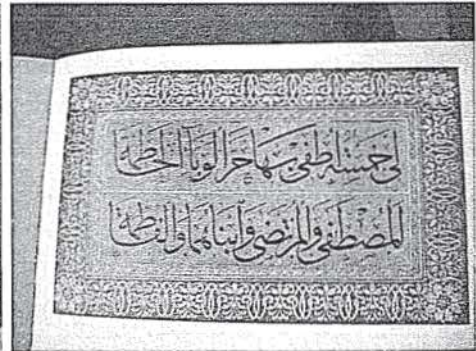 لِي خَمْسَةٌ اُطْفِي بِهَا حَرَّ الْوَبَاءِ الْحَاطِمَة
الْمُصْطَفَى وَالْمُرْتَضَى وَابْنَاهُمَا وَالْفَاطِمَة